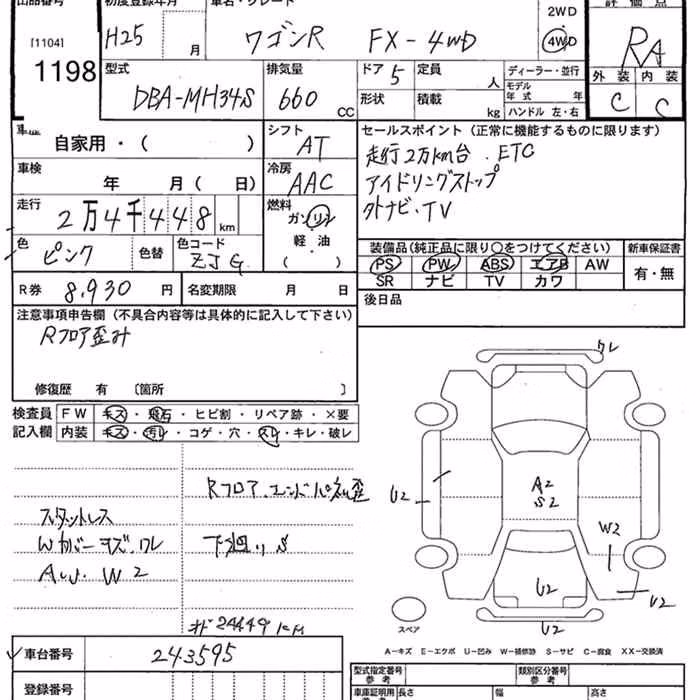 出品番号 初度登録年月 車名・グレード 評価点
[1104]
1198
H25 月
ワゴンR FX-4WD
2WD
4WD
RA
外装 内装
C C
型式
DBA-MH34S
排気量
660 CC
ドア 5 定員 人
形状 積載 kg
ディーラー・並行
モデル年式 年
ハンドル 左・右
自家用・( )
シフト
AT
車検
年 月 ( 日)
冷房
AAC
走行
2万4千448 km
燃料
ガソリン
軽・油
( )
色
ピンク 色替
色コード
ZJG
R券 8,930 円 名変期限 月 日
セールスポイント(正常に機能するものに限ります)
走行2万km台.ETC
アイドリングストップ
外ナビ.TV
装備品(純正品に限り○をつけてください) 新車保証書
PS PW ABS エアB AW
SR ナビ TV カワ
有・無
後日品
注意事項申告欄(不具合内容等は具体的に記入して下さい)
Rフロア歪み
修復歴 有 〔箇所 〕
検査員 FW キズ・飛石・ヒビ割・リペア跡・×要
記入欄 内装 キズ・汚れ・コゲ・穴・スレ・キレ・破レ
Rフロア.エンドパネル歪
スタットレス
Wカバーキズ.ワレ 下廻りS
AW W2
24449km
ワレ
U2
A2
S2
W2
U2
U2
U2
スペア
A-キズ E-エクボ U-凹み W-補修跡 S-サビ C-腐食 XX-交換済
車台番号 243595
登録番号
型式指定番号 参考 類別区分番号 参考
車庫証明用 参考 長さ 幅 高さ